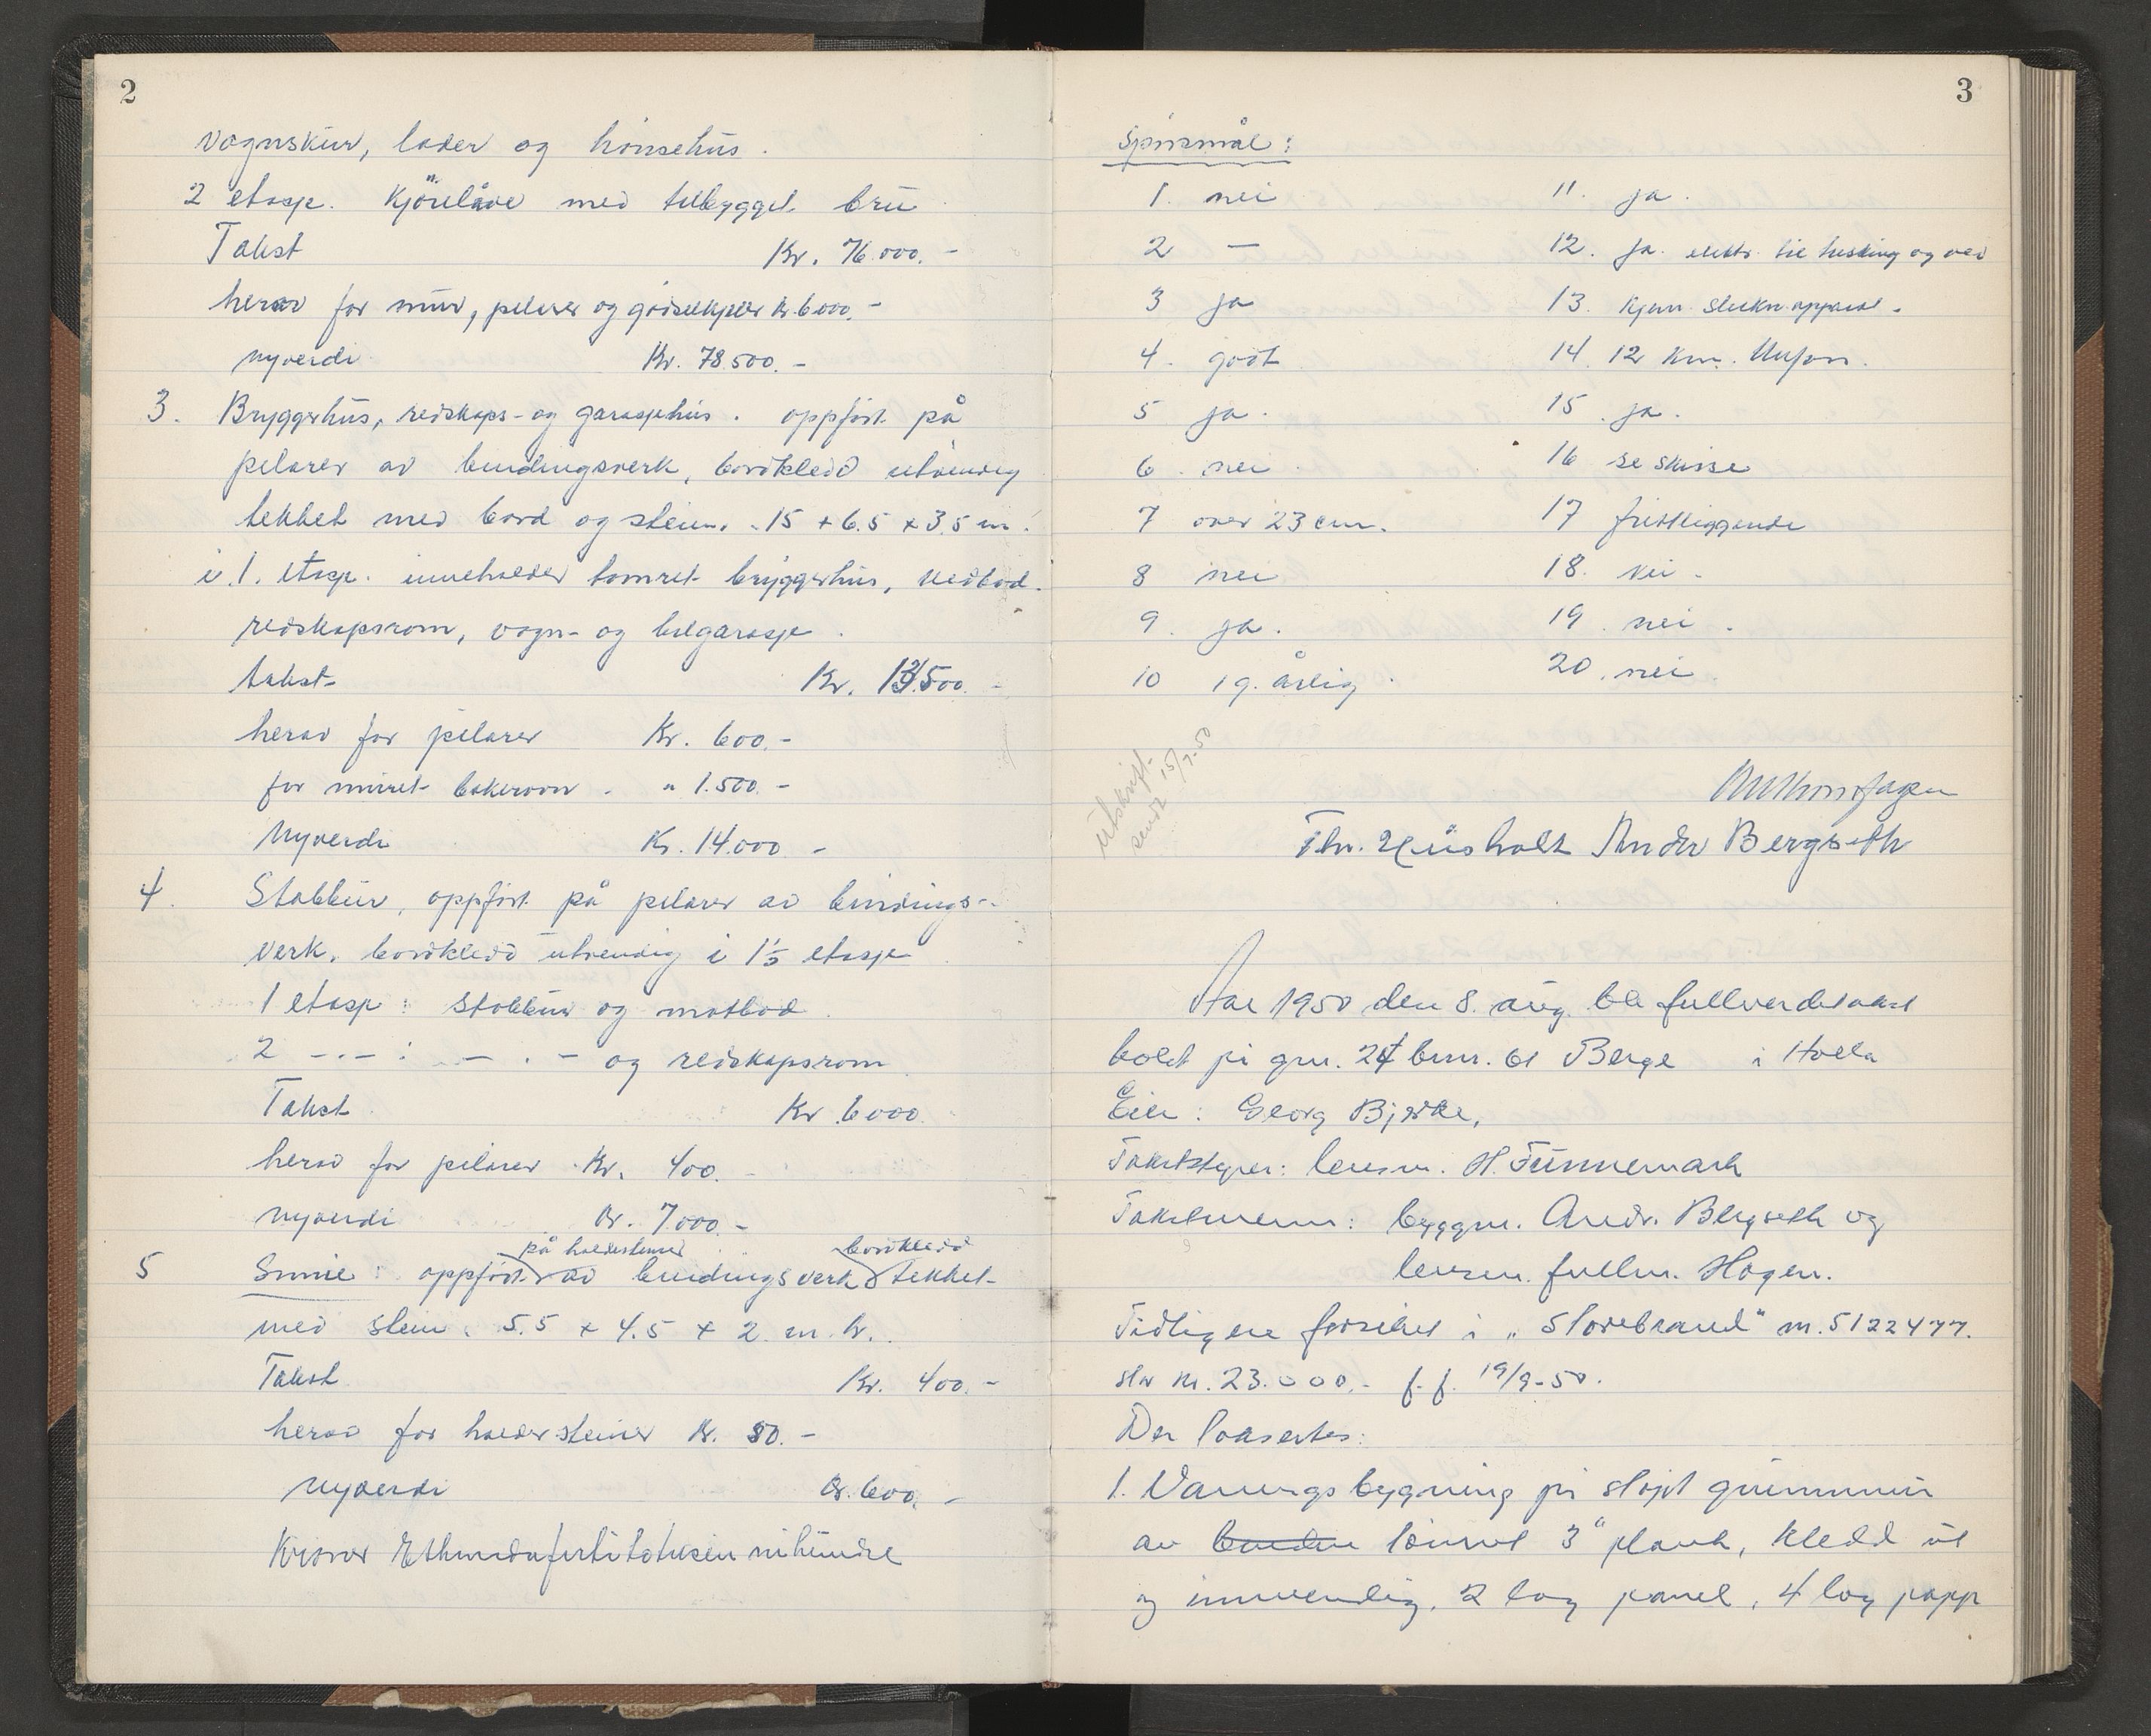 2
vognskur, lader og hönsehus.
2 etasje. Kjörelåve med tilbygget bru
Takst Kr. 76.000.-
herav for mur, pelarer og gjödselkjeller kr. 6000.-
nyverdi Kr. 78.500.-
3. Bryggerhus, redskaps- og garasjehus. oppfört på
pelarer av bindingsverk, bordkledd utvendig
tekket med bord og stein. 15 x 6.5 x 3.5 m.
i 1. etasje. inneholder tömret bryggerhus, vedbod.
redskapsrom, vogn- og bilgarasje.
takst Kr. 500.-
herav for pelarer Kr. 600.-
for muret bakerovn - " 1.500.-
Nyverdi Kr. 14.000 -
4. Stabbur, oppfört på pelarer av bindings-
verk, bordkledd utvendig i 1½ etasje
1 etasje: stabbur og matbod.
2 -.- : - . - og redskapsrom
Takst Kr. 6000.
herav for pelarer Kr. 400.-
nyverdi Kr. 7.000.-
på heldersteiner bordkledd
5 Smie: oppfört av bindingsverk tekket
med stein. 5.5 x 4.5 x 2 m. h.
Takst Kr. 400.-
herav for heldersteiner Kr. 50.-
Nyverdi Kr. 600.-
3
Spörsmål:
1. nei 11. ja.
2 — 12. ja. elektr. til lysning og ved
3 ja 13. kjem. slukn. apparat.
4. godt 14. 12 km. Ulefoss.
5 ja. 15. ja.
6. nei 16 se skisse
7 over 23 cm. 17 frittliggende
8 nei 18. nei.
9. ja. 19. nei.
10 19. årlig 20. nei.
Utskrift
sendt 15/7-50
Thv. Husholt Andr Bergseth
Aar 1950 den 8. aug. ble fullverditakst
holdt på gnr. 24 bnr. 61 Berge i Holla
Eier: Georg Bjerke,
Takststyrer: lensm. H. Funnemark
Takstmenn: byggm. Andr. Bergseth og
lensm. fullm. Hagen.
Tidligere forsikret i "Storebrand" nr. 5122477.
stor kr. 23.000.- f. f. 19/9-50.
Der taksertes:
1. Vaaningsbygning på støpt grunnmur
av tømret 3" plank, kledd ut
og innvendig. 2 lag panel, 4 lag papp